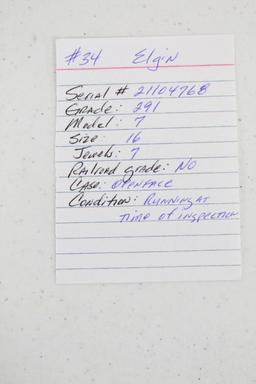 #34 Elgin
Serial # 21104768
Grade: 291
Model: 7
Size: 16
Jewels: 7
Railroad grade: No
Case: openface
Condition: Running at
time of inspection